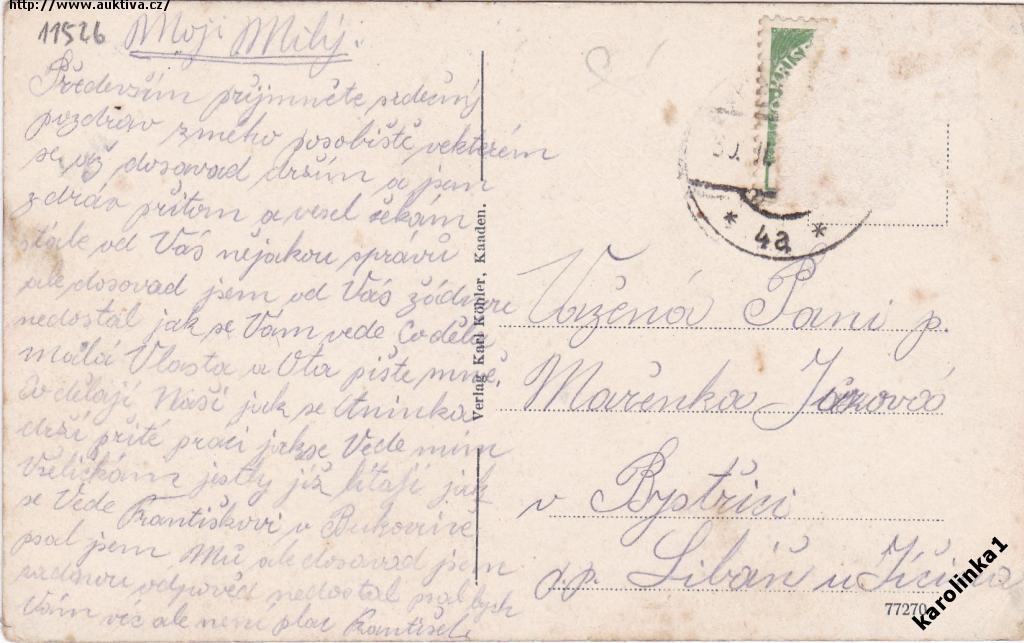 http://www.auktiva.cz/
11526
Moji Milý.
Především přijmněte srdečný
pozdrav zmého posobiště vekterém
se už dosavad držím a jsem
zdráv přitom a vesel čekám
stále od Vás nějakou správů
ale dosavad jsem od Vás žádnou
nedostal jak se Vám vede Co děla
malá Vlasta a Ota pište mně.
Co dělají Naši jak se Aninka
drží při té praci jakse Vede mím
Včeličkám jestly již lítají jak
se Vede Františkovi v Bukovině
psal jsem Mů ale dosavad jsem
žádnou odpověd nedostal psal bych
Vám víc ale není plac František
Verlag Karl Köhler, Kaaden.
30.
* 4a *
Vážená Paní p.
Mařenka
v Bystřici
p.p. Libáň u Jičína
77270
karolinka1